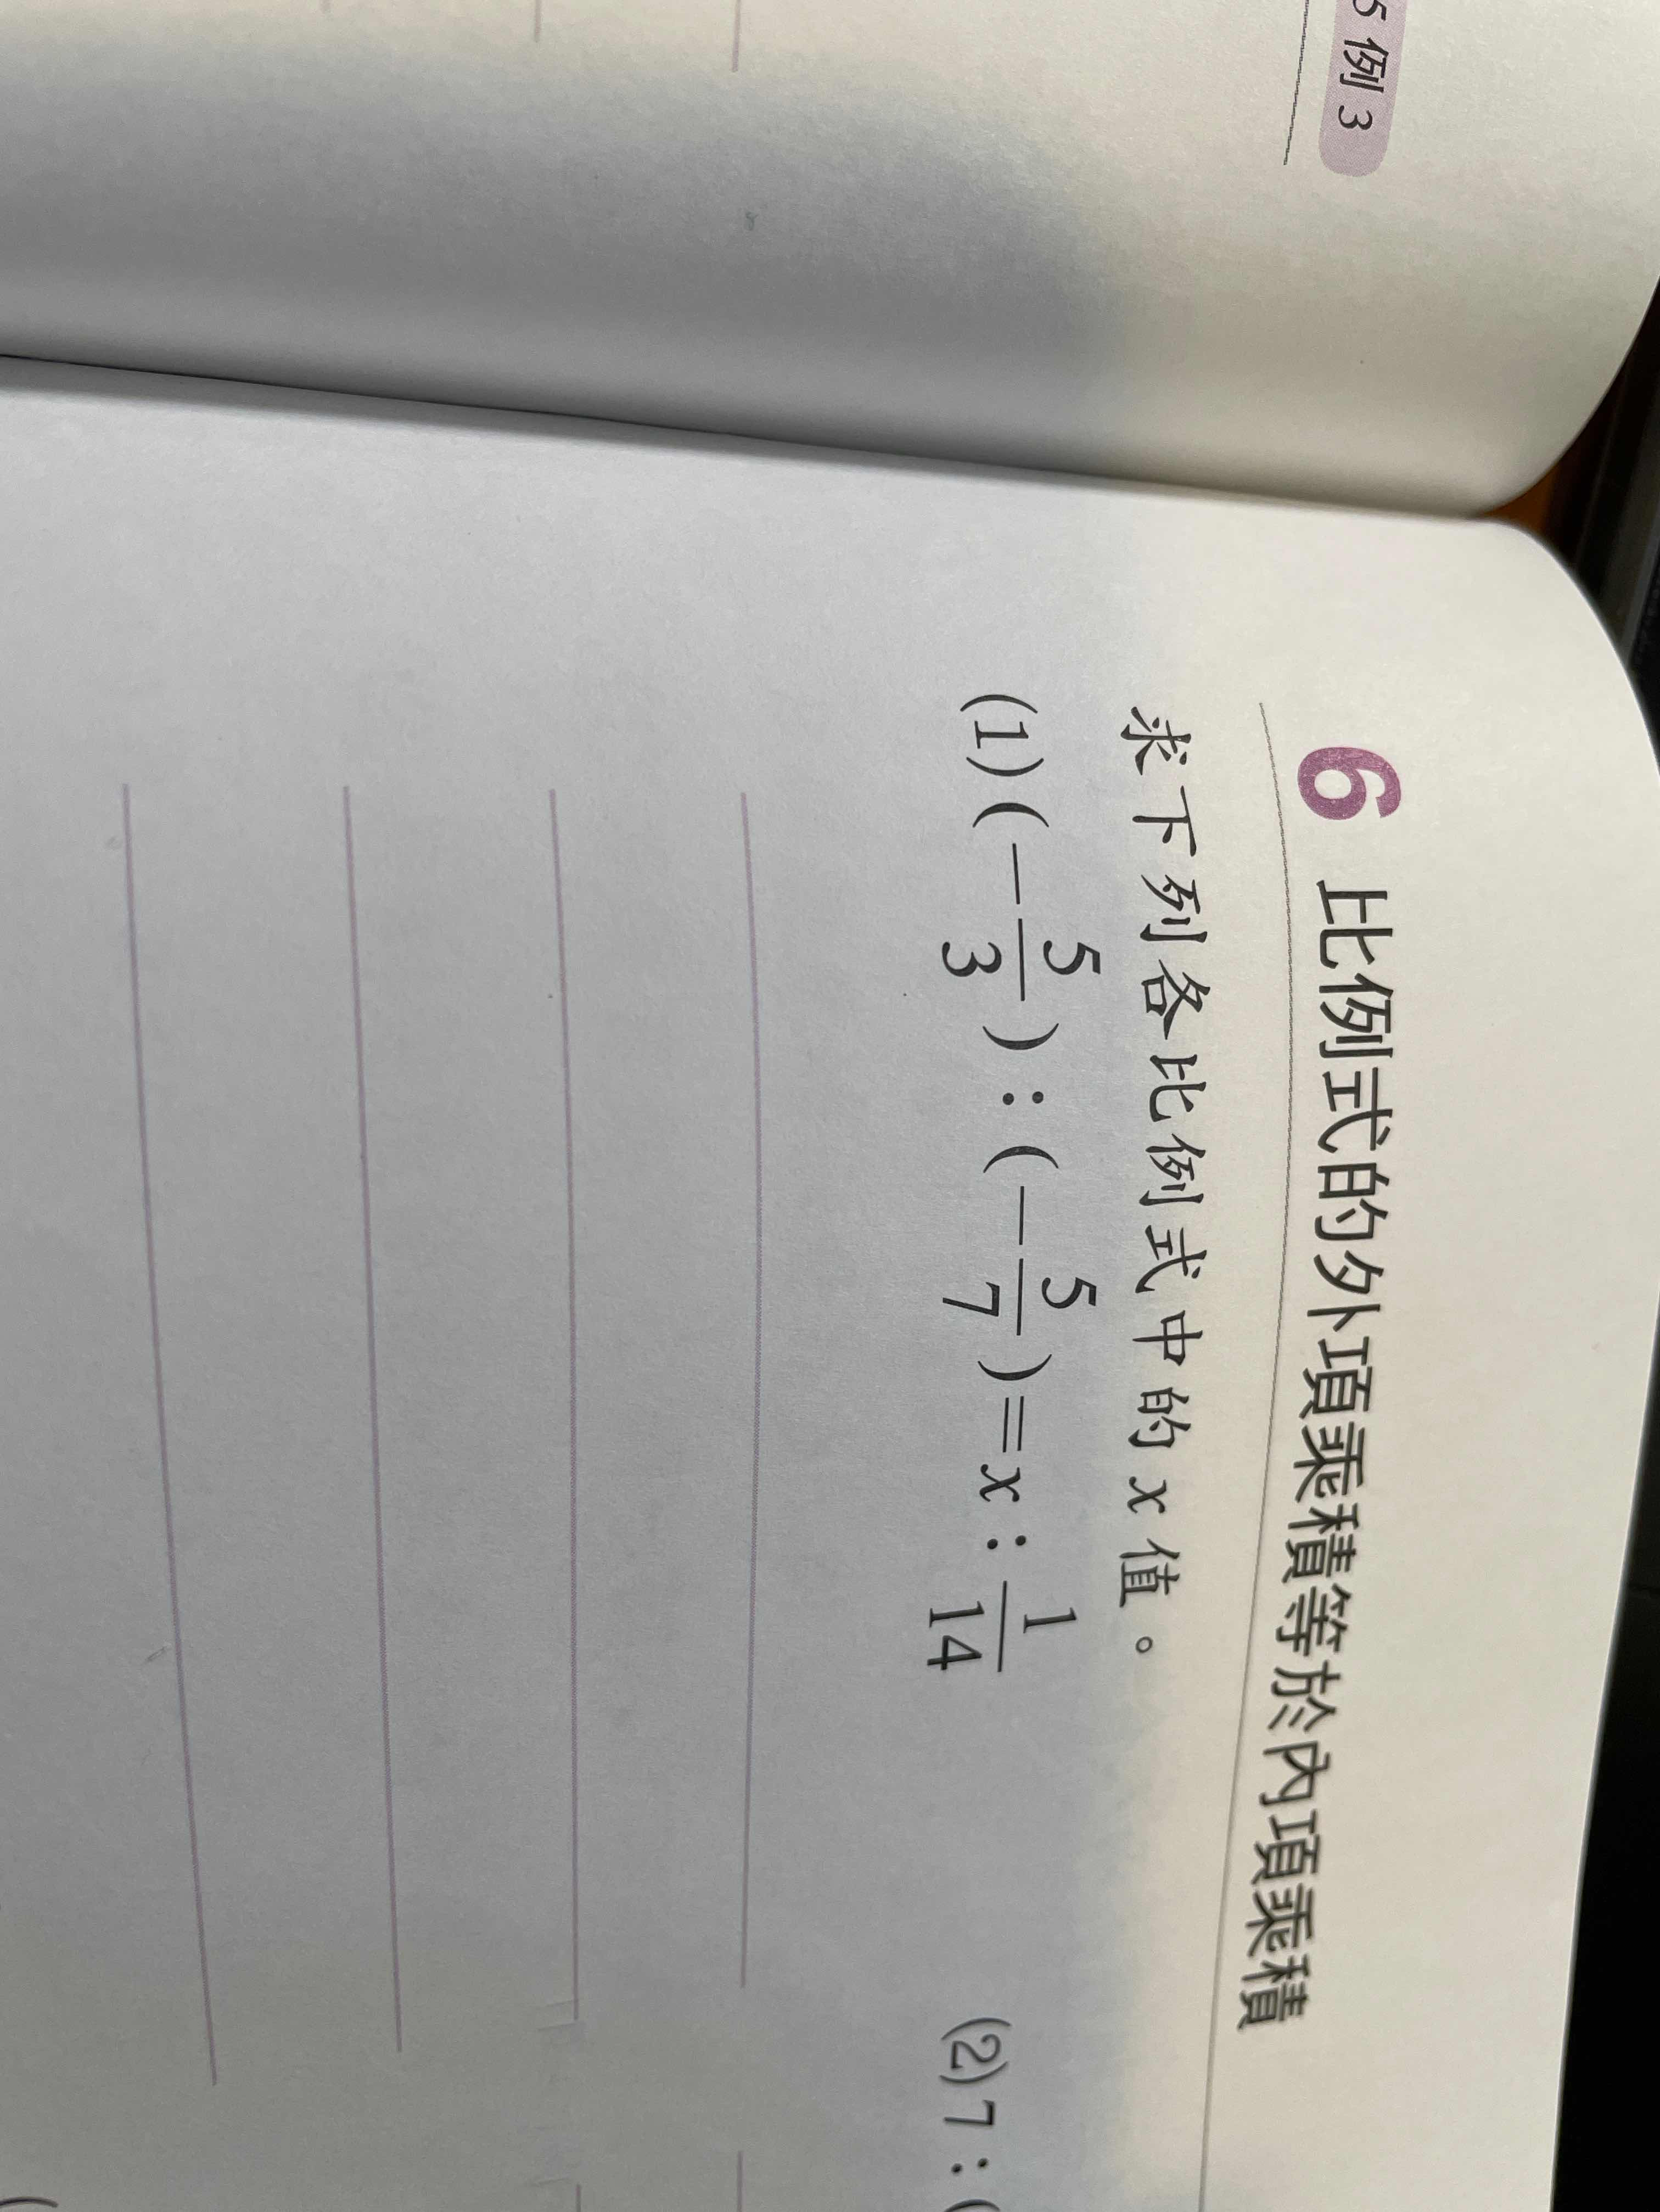 5 例 3
6 比例式的外項乘積等於內項乘積
求下列各比例式中的 x 值。
(1) (－5/3)：(－5/7)＝x：1/14
(2) 7：(